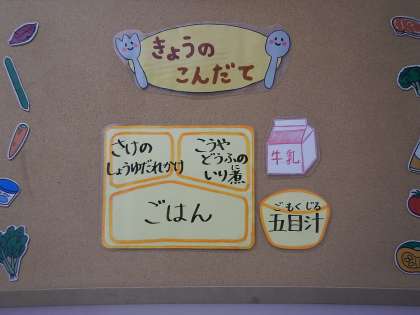 きょうの
こんだて
さけの
しょうゆだれかけ
こうや
どうふの
いり煮
に
ごはん
牛乳
ごもくじる
五目汁